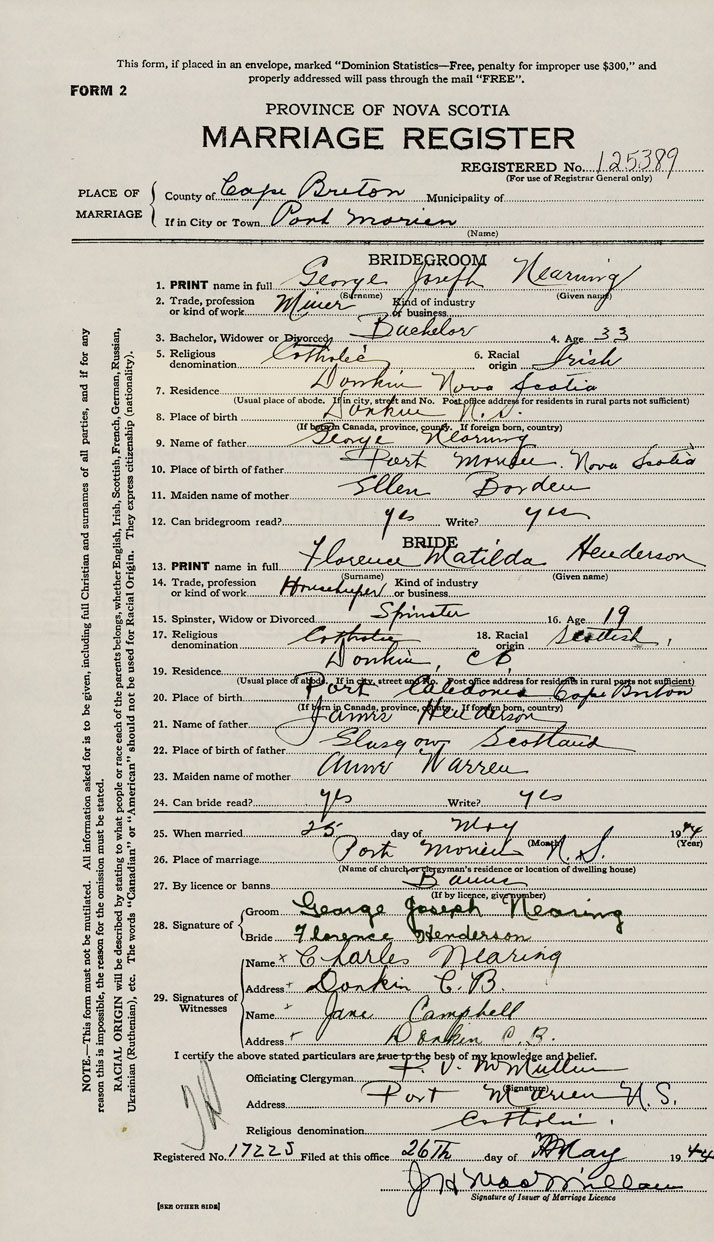 This form, if placed in an envelope, marked "Dominion Statistics—Free, penalty for improper use $300," and
properly addressed will pass through the mail "FREE".
FORM 2
PROVINCE OF NOVA SCOTIA
MARRIAGE REGISTER
REGISTERED No. 125389
(For use of Registrar General only)
PLACE OF MARRIAGE
County of Cape Breton Municipality of
If in City or Town Port Morien
(Name)
BRIDEGROOM
1. PRINT name in full George Joseph Nearning
(Surname) (Given name)
2. Trade, profession or kind of work Miner Kind of industry or business
3. Bachelor, Widower or Divorced Bachelor 4. Age 33
5. Religious denomination Catholic 6. Racial origin Irish
7. Residence Donkin Nova Scotia
(Usual place of abode. If in city, street and No. Post office address for residents in rural parts not sufficient)
8. Place of birth Donkin N.S.
(If born in Canada, province, county. If foreign born, country)
9. Name of father George Nearning
10. Place of birth of father Port Morien. Nova Scotia
11. Maiden name of mother Ellen Borden
12. Can bridegroom read? yes Write? yes
BRIDE
13. PRINT name in full Florence Matilda Henderson
(Surname) (Given name)
14. Trade, profession or kind of work Housekeeper Kind of industry or business
15. Spinster, Widow or Divorced Spinster 16. Age 19
17. Religious denomination Catholic 18. Racial origin Scottish
19. Residence Donkin, CB,
(Usual place of abode. If in city, street and No. Post office address for residents in rural parts not sufficient)
20. Place of birth Port Caledonia Cape Breton
(If born in Canada, province, county. If foreign born, country)
21. Name of father James Henderson
22. Place of birth of father Glasgow Scotland
23. Maiden name of mother Anne Warren
24. Can bride read? yes Write? yes
25. When married 25 day of May 1944
(Month) (Year)
26. Place of marriage Port Morien N.S.
(Name of church or clergyman's residence or location of dwelling house)
27. By licence or banns Banns
(If by licence, give number)
28. Signature of
Groom George Joseph Nearing
Bride Florence Henderson
29. Signatures of Witnesses
Name x Charles Nearing
Address + Donkin C.B.
Name x Jane Campbell
Address + Donkin C.B.
I certify the above stated particulars are true to the best of my knowledge and belief.
Officiating Clergyman McMullin
(Signature)
Address Port Morien N.S.
Religious denomination Catholic
Registered No. 17225 Filed at this office 26th day of May 1944
J H MacMillan
Signature of Issuer of Marriage Licence
[SEE OTHER SIDE]
NOTE.—This form must not be mutilated. All information asked for is to be given, including full Christian and surnames of all parties, and if for any
reason this is impossible, the reason for the omission must be stated.
RACIAL ORIGIN will be described by stating to what people or race each of the parents belongs, whether English, Irish, Scottish, French, German, Russian,
Ukrainian (Ruthenian), etc. The words "Canadian" or "American" should not be used for Racial Origin. They express citizenship (nationality).